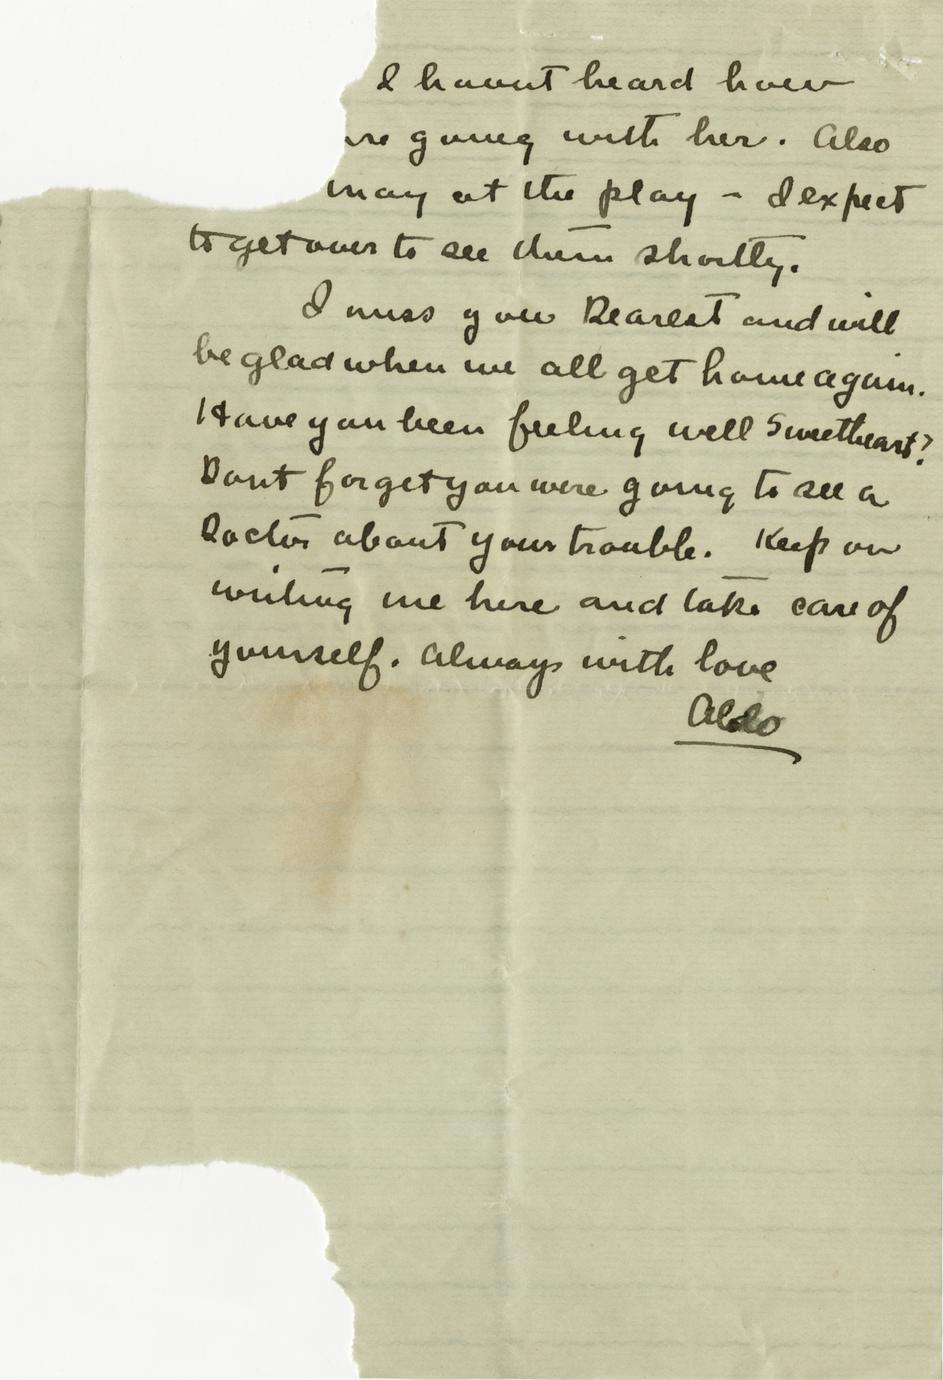 I havnt heard how
are going with her. Also
may at the play - I expect
to get over to see them shortly.
I miss you Dearest and will
be glad when we all get home again.
Have you been feeling well Sweetheart?
Dont forget you were going to see a
Doctor about your trouble. Keep on
writing me here and take care of
yourself. Always with love
Aldo